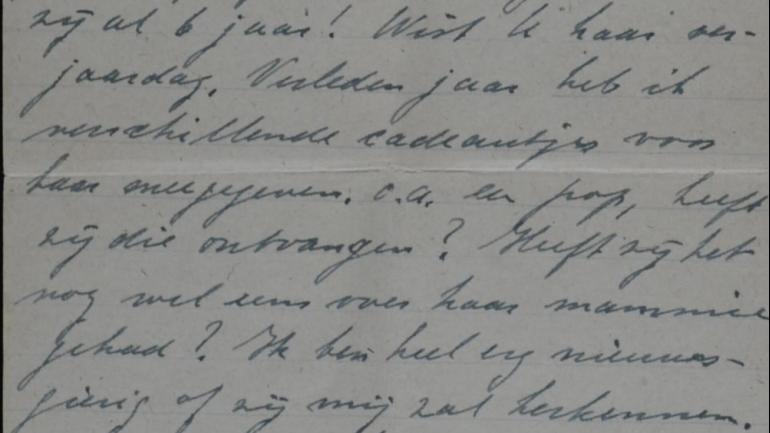 zij al 6 jaar! Wist U haar ver-
jaardag. Verleden jaar heb ik
verschillende cadeautjes voor
haar meegegeven. o.a. een pop, heeft
zij die ontvangen? Heeft zij het
nog wel eens over haar mammie
gehad? Ik ben heel erg nieuws-
gierig of zij mij zal herkennen.